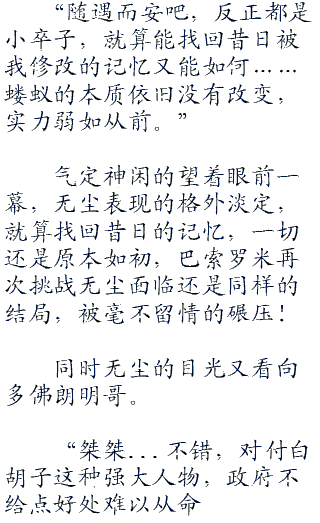 “随遇而安吧，反正都是
小卒子，就算能找回昔日被
我修改的记忆又能如何……
蝼蚁的本质依旧没有改变，
实力弱如从前。”
气定神闲的望着眼前一
幕，无尘表现的格外淡定，
就算找回昔日的记忆，一切
还是原本如初，巴索罗米再
次挑战无尘面临还是同样的
结局，被毫不留情的碾压！
同时无尘的目光又看向
多佛朗明哥。
“桀桀...不错，对付白
胡子这种强大人物，政府不
给点好处难以从命